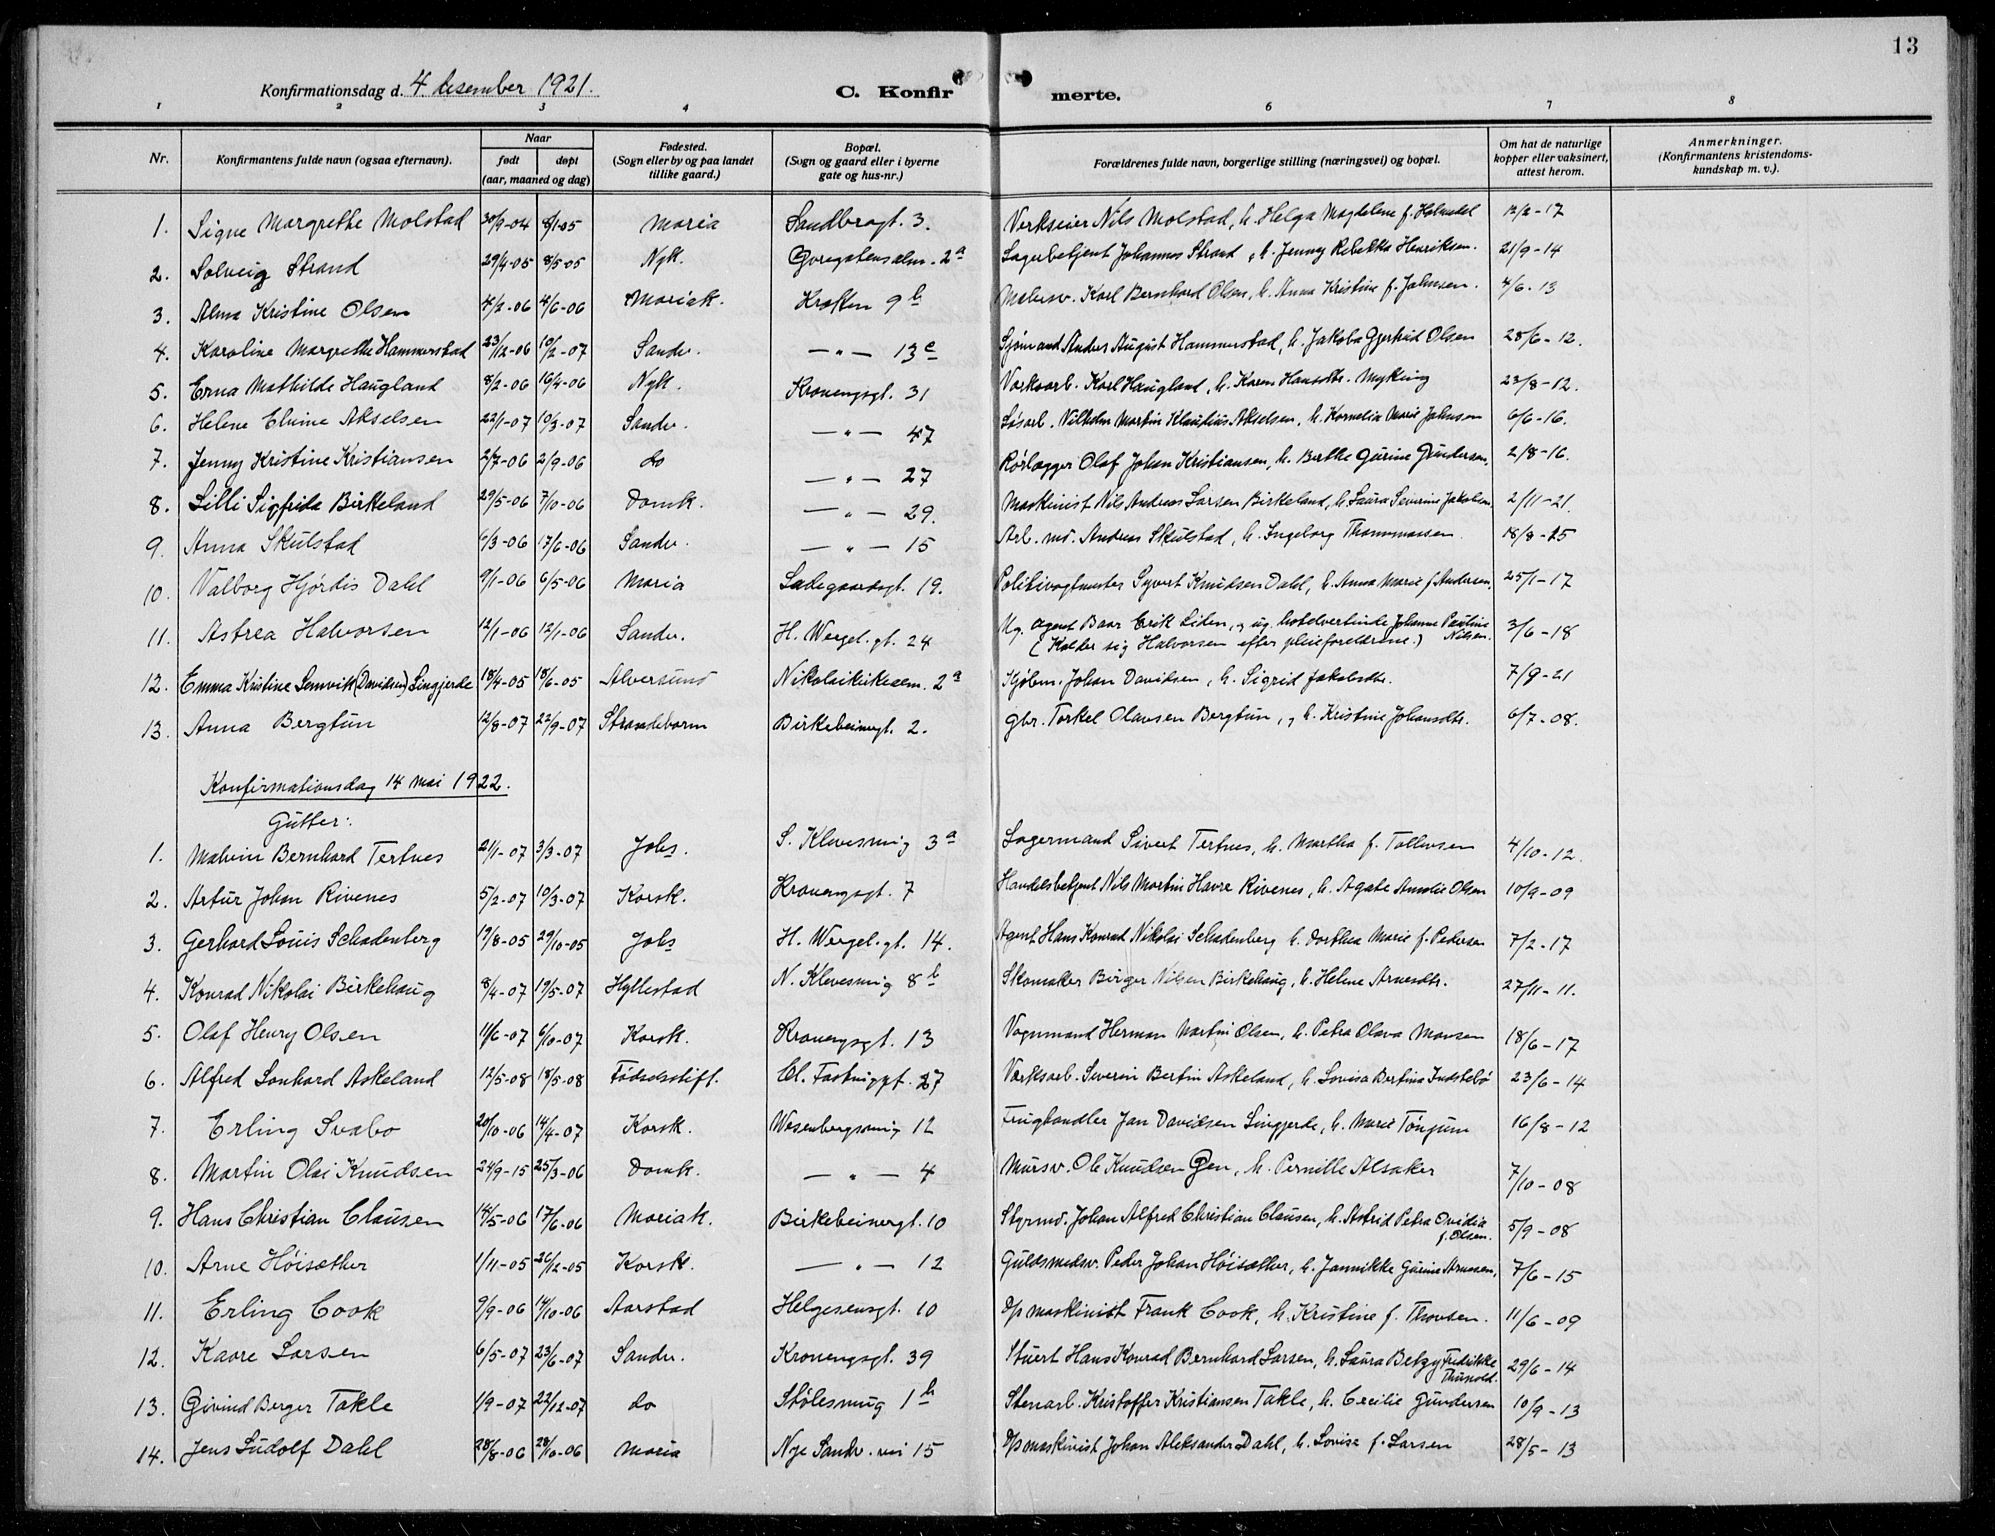 13
Konfirmationsdag d. 4 desember 1921.
C. Konfirmerte.
1 2 3 4 6 7 8
Nr. Konfirmantens fulde navn (ogsaa efternavn). Naar født døpt (aar, maaned og dag) Fødested. (Sogn eller by og paa landet tillike gaard.) Bopæl. (Sogn og gaard eller i byerne gate og hus-nr.) Forældrenes fulde navn, borgerlige stilling (næringsvei) og bopæl. Om hat de naturlige kopper eller vaksinert, attest herom. Anmerkninger. (Konfirmantens kristendoms-kundskap m. v.).
1. Signe Margrethe Molstad 30/9-04 8/1-05 Maria Sandbrogt. 3. Verkseier Nils Molstad, h. Helga Magdelene f. 12/2-17
2. Solveig Strand 29/4-05 8/5-05 Nyk. 2a Lagerbetjent Johannes Strand, h. Jenny Rebekka Henriksen. 21/9-14
3. Alma Kristine Olsen 4/2-06 4/6-06 Mariak. Kroken 9b Malersv. Karl Bernhard Olsen, h. Anna Kristine f. Johnsen. 4/6-13
4. Karoline Margrethe Hammerstad 23/12-06 10/2-07 Sandv. —"— 13c Sjømand Anders August Hammerstad, h. Jakoba Gjertrud Olsen 28/6-12.
5. Erna Mathilde Haugland 8/2-06 16/4-06 Nyk. Krouengsgt. 31 Verksarb. Karl Haugland, h. Karen Hansdtr. Myking 23/8-12.
6. Helene Elvine Akselsen 22/1-07 10/3-07 Sandv. —"— 47 Løsarb. Vilhelm Martin Klaudius Akselsen, h. Kornelia Marie Johnsen 6/6-16.
7. Jenny Kristine Kristiansen 2/7-06 2/9-06 do —"— 27 Rørlægger Olaf Johan Kristiansen, h. Berthe Gurine Gundersen. 2/8-16.
8. Lilli Sigfrida Birkeland 29/5-06 7/10-06 Domk. —"— 29. Maskinist Nils Andreas Larsen Birkeland, h. Laura Severine Jakobsen 2/11-21.
9. Anna Skulstad 6/3-06 17/6-06 Sandv. —"— 15 Arb. md. Andreas Skulstad, h. Ingeborg Thommassen. 18/8-25
10. Valborg Hjørdis Dahl 9/1-06 6/5-06 Maria Ladegaardsgt. 19. Politivagtmester Syvert Knudsen Dahl, h. Anna Marie f. Andersen. 25/1-17
11. Astrea Halvorsen 12/1-06 12/1-06 Sandv. H. Wergel. gt. 24 Ug. agent Baar Erik Liden, og ug. hotelvertinde Johanne Pauline Nilsen. 3/6-18
(Kalder sig Halvorsen efter pleieforeldrene.)
12. Emma Kristine Lemvik (Davidsen) Lingjerde 18/4-05 18/6-05 Alversund Nikolaikirkealm. 2a Kjøbm. Johan Davidsen, h. Sigrid Jakobsdtr. 7/9-21
13. Anna Bergtun 12/8-07 22/9-07 Strandebarm Birkebeinergt. 2. Gbr. Torkel Olavsen Bergtun, og h. Kristine Johansdtr. 6/7-08.
Konfirmationsdag 14 mai 1922.
Gutter:
1. Malvin Bernhard Tertnes 21/1-07 3/3-07 Johs. S. Klevesmug 3a Lagermand Sivert Tertnes, h. Martha f. Tollevsen 4/10-12.
2. Artur Johan Rivenes 5/2-07 10/3-07 Korsk. Krouengsgt. 7 Handelsbetjent Nils Martin Havre Rivenes, h. Agate Amalie Olsen 10/9-09
3. Gerhard Louis Schadenberg 19/8-05 29/10-05 Johs H. Wergel. gt. 14. Agent Hans Konrad Nikolai Schadenberg h. Dorthea Marie f. Pedersen 7/2-17
4. Konrad Nikolai Birkehaug 8/4-07 19/5-07 Hyllestad N. Klevesmug 8b Skomaker Birger Nilsen Birkehaug, h. Helene Arnesdtr. 27/11-11.
5. Olaf Henry Olsen 11/6-07 6/10-07 Korsk. Krouengsgt. 13 Vognmand Herman Martin Olsen, h. Petra Olava Monsen 18/6-17
6. Alfred Lonhard Askeland 12/5-08 18/5-08 Fødselsstift. Cl. 27 Verksarb. Severin Bertin Askeland, h. Lovisa Bertina Indstebø 23/6-14
7. Erling Svabo 20/10-06 14/4-07 Korsk. Wesenbergsmug 12 Frugthandler Jan Davidsen Lingjerde, h. Marie Tønjum 16/8-12
8. Martin Olai Knudsen 24/9-15 25/3-06 Domk. —"— 4 Mursv. Ole Knudsen Gjen, h. Pernille Alsaker 7/10-08
9. Hans Christian Clausen 14/5-06 17/6-06 Mariak. Birkebeinergt. 10 Styrmd. Johan Alfred Christian Clausen, h. Astrid Petra Ovidia f. Olsen. 5/9-08
10. Arne Høisæther 1/11-05 26/12-05 Korsk. —"— 12 Guldsmedsv. Peder Johan Høisæther, h. Jannikke Gurine Arnesen, 7/6-15
11. Erling Cook 9/9-06 14/10-06 Aarstad Helgesensgt. 10 D/p maskinist Frank Cook, h. Kristine f. Thorsen. 11/6-09
12. Kaare Larsen 6/5-07 23/6-07 Sandv. Krouengsgt. 39 Stuert Hans Konrad Bernhard Larsen, h. Laura Betzy Fredrikke Thunold. 29/6-14
13. Eivind Berger Takle 1/9-07 22/12-07 do Stølesmug 1b Stenarb. Kristoffer Kristiansen Takle, h. Cecilie Gundersen 10/9-13
14. Jens Ludolf Dahl 28/8-06 28/10-06 Maria Nye Sandv. vei 15 D/p maskinist Johan Aleksander Dahl, h. Lovise f. Larsen 28/5-13